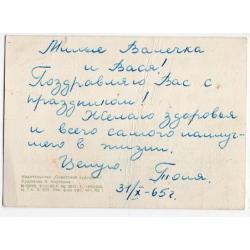 Милые Ванечка
и Вася!
Поздравляю Вас с
праздником!
Желаю здоровья
и всего самого наилуч-
шего в жизни.
Целую. Тоня.
31/X-65г.
Издательство „Советский художник"